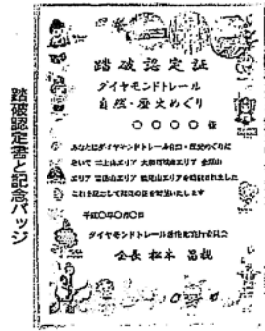 踏破認定証
ダイヤモンドトレール
自然・歴史めぐり
○○○○ 様
あなたはダイヤモンドトレール自然・歴史めぐりに
おいて 二上山エリア 大和葛城山エリア 金剛山
エリア 岩湧山エリア 槇尾山エリアを踏破されました
これを記念して踏破の証を贈呈いたします
平成○年○月○日
ダイヤモンドトレール活性化実行委員会
会長 松本 昌親
踏破認定書と記念バッジ